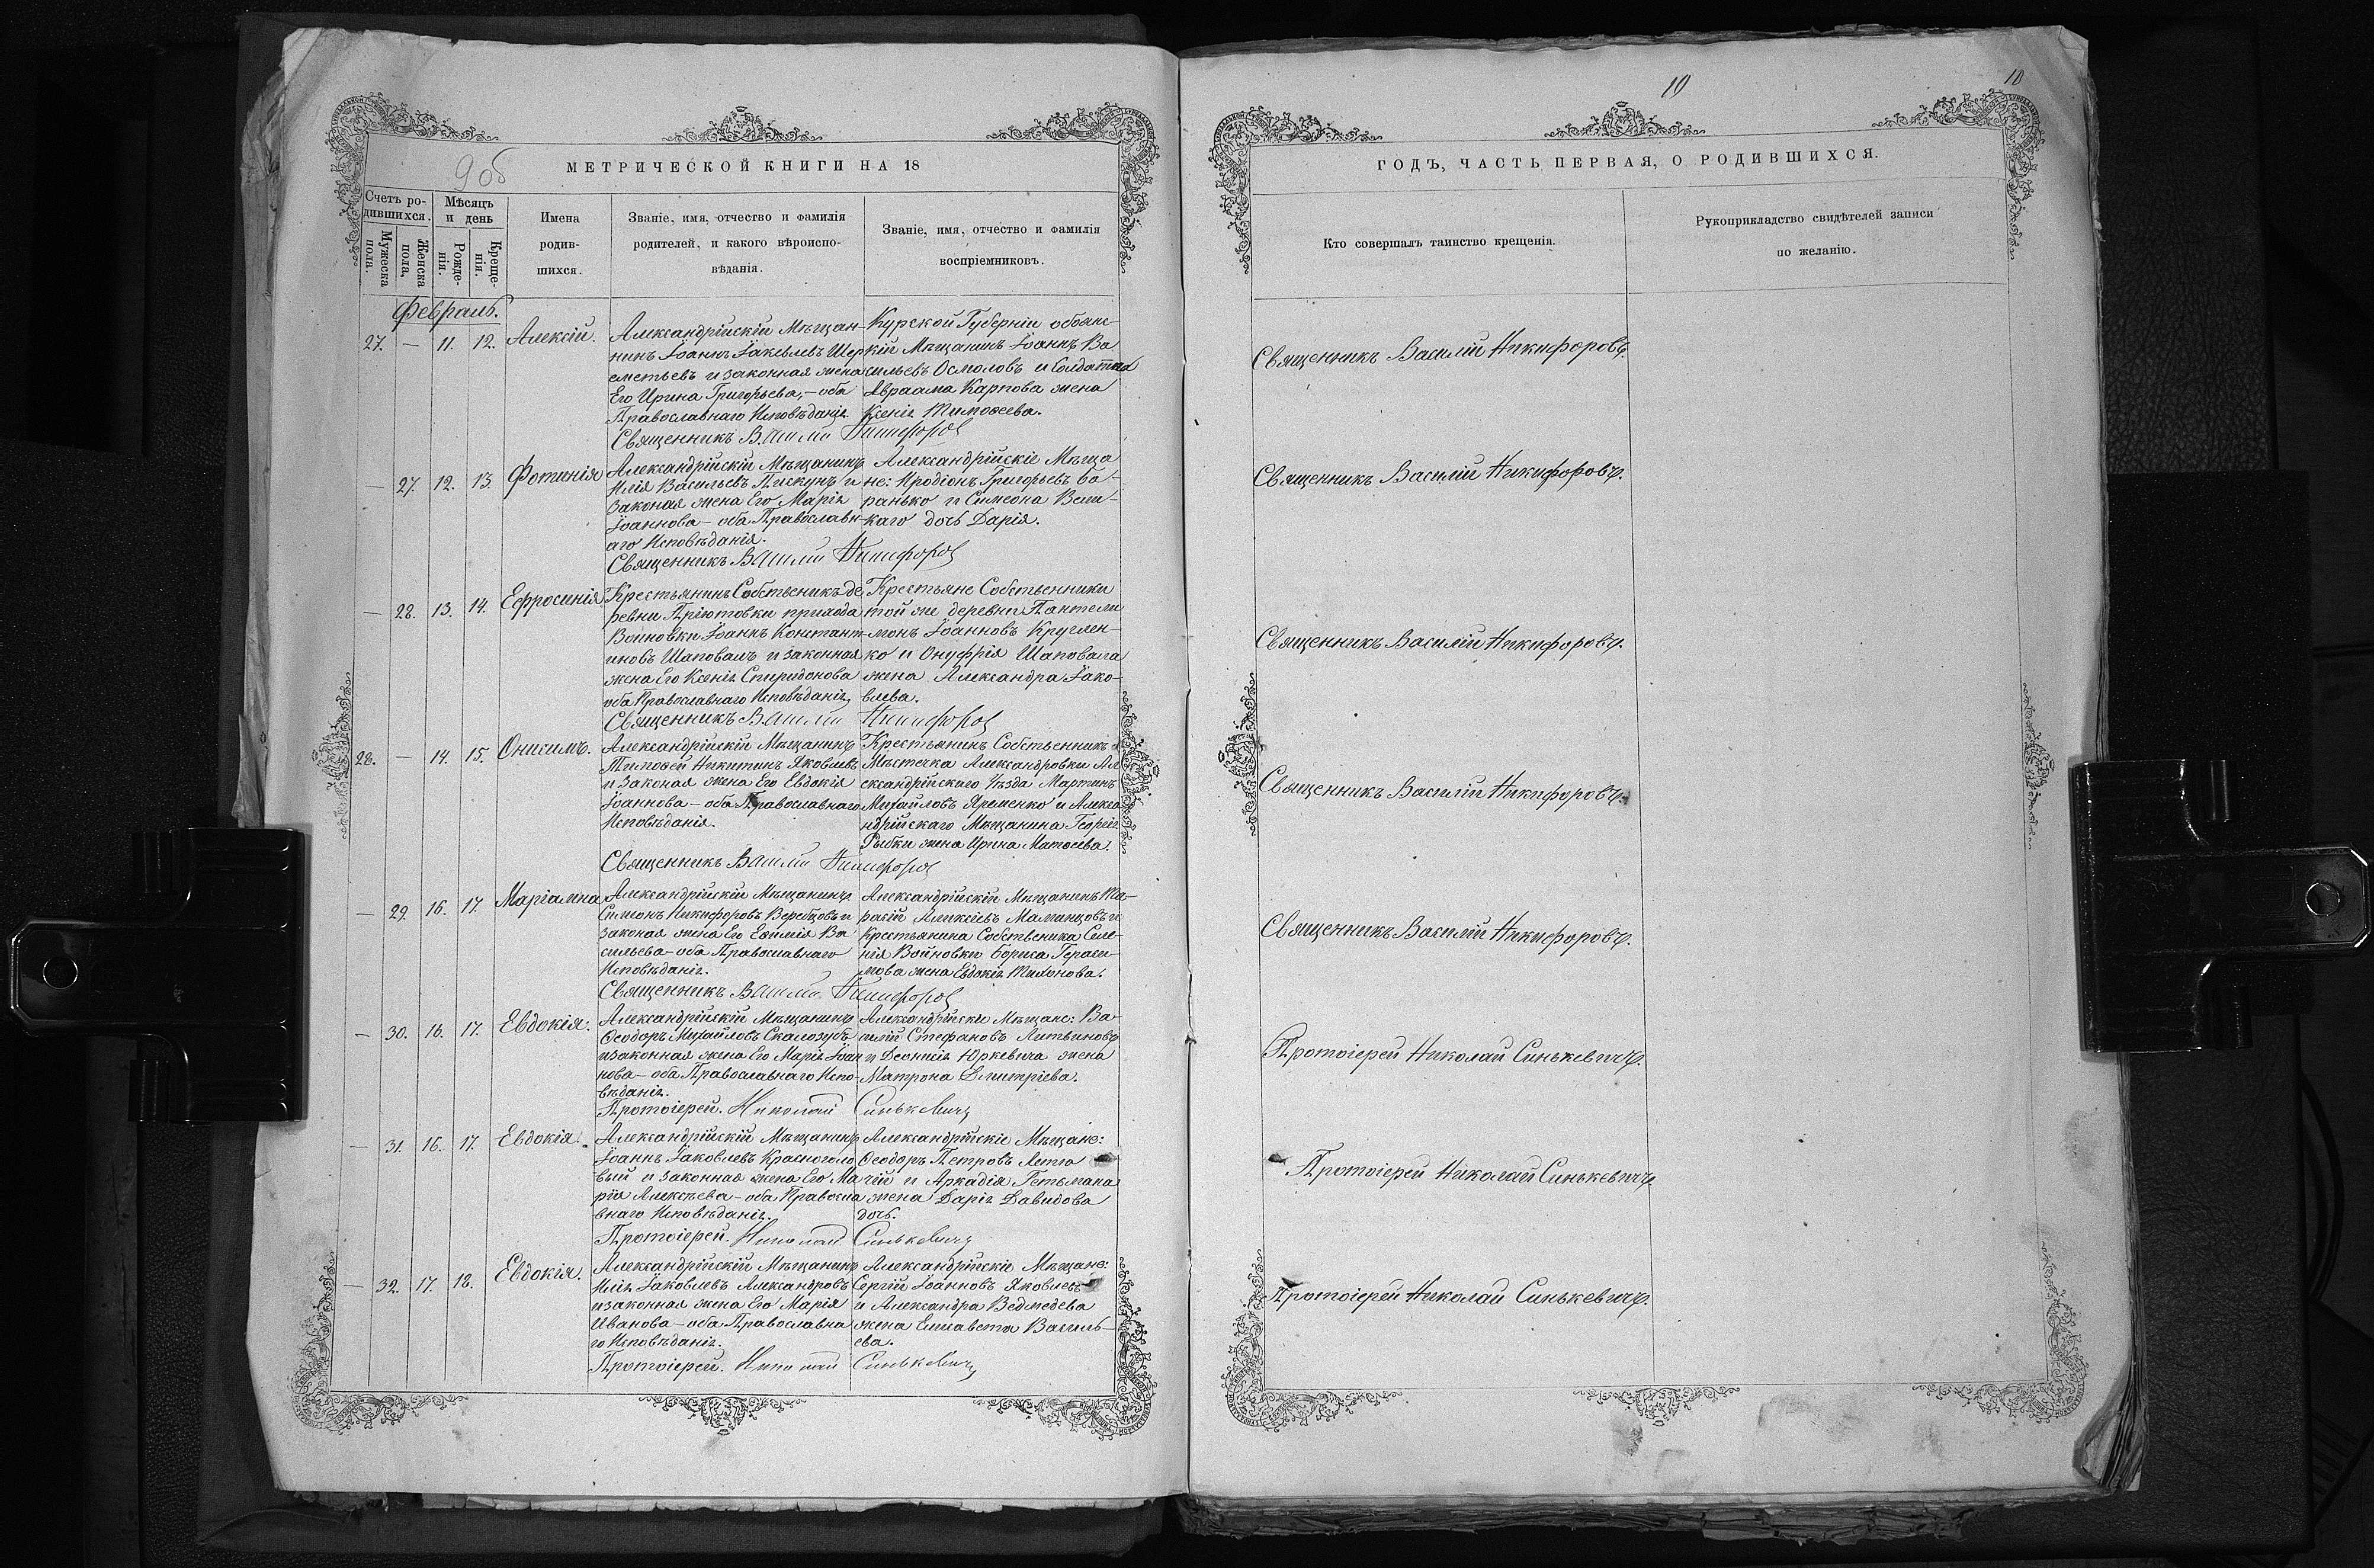 9 об
МЕТРИЧЕСКОЙ КНИГИ НА 18
Счетъ ро-
дившихся.
Мужеска
пола.
Женска
пола,
Мѣсяцъ
и день
Рожде-
нія.
Креще-
нія.
Имена
родив-
шихся.
Званіе, имя, отчество и фамилія
родителей, и какого вѣроиспо-
вѣданія.
Званіе, имя, отчество и фамилія
воспріемниковъ.
Февраль.
27. — 11. 12. Алексій.
Александрійскій Мѣщан-
нинъ Іоаннъ Іаковлевъ Шер
еметьевъ и законная жена
Его Ирина Григорьева, — оба
Православнаго Исповѣданія.
Курской Губерніи обоянс-
кій Мѣщанинъ Іоаннъ Ва
сильевъ Осмоловъ и Солдатта
Авраама Карпова жена
Ксенія Тимоѳеева.
Священникъ Василій Никифоровъ
— 27. 12. 13. Фотинія
Александрійскій Мѣщанинъ
Илія Васильевъ Пискунъ и
Законая жена Его Марія
Іоаннова — оба Православн-
аго Исповѣданія.
Александрійскіе Мѣща
не: Иродіонъ Григорьевъ Ба-
ранько и Симеона Вели-
каго дочь Дарія.
Священникъ Василій Никифоровъ
— 28. 13. 14. Ефросинія
Крестьянинъ Собственикъ де
ревни Пріютовки прихода
Войновки Іоаннъ Константи-
иновъ Шаповалъ и законная
жена Его Ксенія Спиридонова
оба Православнаго Исповѣданія,
Крестьяне Собственики
той же деревни Пантели
монъ Іоанновъ Круглен-
ко и Онуфрія Шаповала
жена Александра Іако-
влева.
Священникъ Василій Никифоровъ
28. — 14. 15. Онисимъ.
Александрійскій Мѣщанинъ
Тимоѳей Никитинъ Яковлевъ
и Законая жена Его Евдокія
Іоаннова — оба Православнаго
Исповѣданія.
Крестьянинъ Собственикъ
Мѣстечка Александровки Ал
ександрійскаго Уѣзда Мартинъ
Михайловъ Яременко и Алекса
ндрійскаго Мѣщанина Георгія
Рыбки жена Ирина Матѳеева.
Священникъ Василій Никифоровъ
— 29. 16. 17. Маріамна
Александрійскій Мѣщанинъ
Симонъ Никифоровъ Веребцовъ и
законая жена Его Евфимія Ва
сильева — оба Православнаго
Исповѣданія.
Александрійскій Мѣщанинъ Та-
расій Алексіевъ Маминцовъ и
Крестьянина Собственика Селе-
нія Войновки Бориса Гераси-
мова жена Евдокія Тихонова.
Священникъ Василій Никифоровъ
— 30. 16. 17. Евдокія.
Александрійскій Мѣщанинъ
Ѳеодоръ Михайловъ Скалозубъ
и законная жена Его Марія Іоан
нова — оба Православнаго Испо-
вѣданія.
Александрійскіе Мѣщане: Ва-
силій Стефановъ Литвиновъ
и Діонисія Юркевича жена
Матрона Дмитріева.
Протоіерей. Николай Синькевичъ
— 31. 16. 17. Евдокія.
Александрійскій Мѣщанинъ
Іоаннъ Іаковлевъ Красноголо
вый и Законная жена Его Ма
рія Алексѣева — оба Правосла
внаго Исповѣданія.
Александрійскіе Мѣщане:
Ѳеодоръ Петровъ
и Аркадія Гетьмана
жена Дарія Давидова
дочь.
Протоіерей. Николай Синькевичъ
— 32. 17. 18. Евдокія.
Александрійскій Мѣщанинъ
Илія Іаковлевъ Александровъ
и законная жена Его Марія
Иванова — оба Православна
го Исповѣданія.
Александрійскіе Мѣщане:
Сергій Іоанновъ Яковлевъ
и Александра Ведмедева
жена Елисавета Василь-
ева.
Протоіерей. Николай Синькевичъ
10
10
ГОДЪ, ЧАСТЬ ПЕРВАЯ, О РОДИВШИХСЯ.
Кто совершалъ таинство крещенія.
Рукоприкладство свидѣтелей записи
по желанію.
Священникъ Василій Никифоровъ.
Священникъ Василій Никифоровъ.
Священникъ Василій Никифоровъ.
Священникъ Василій Никифоровъ.
Священникъ Василій Никифоровъ.
Протоіерей Николай Синькевичъ.
Протоіерей Николай Синькевичъ
Протоіерей Николай Синькевичъ.